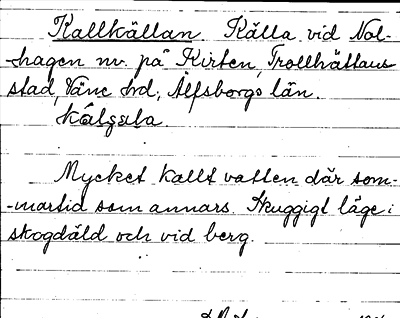 Kallkällan. Källa vid Nol-
-hagen nv. på Kirten, Trollhättans
stad, Väne hd, Älfsborgs län.
Mycket kallt vatten där som-
-martid som annars. Skuggigt läge i
skogdäld och vid berg.